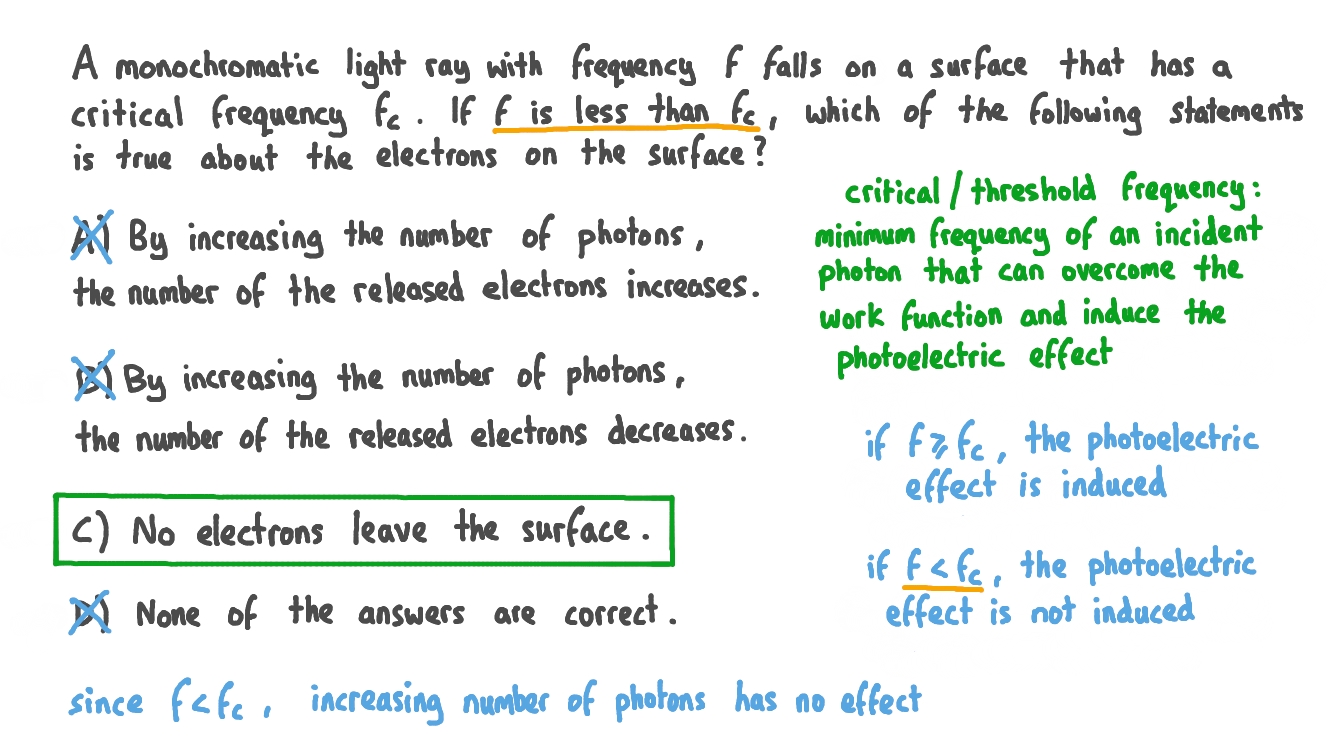 A monochromatic light ray with frequency f falls on a surface that has a
critical frequency fc. If f is less than fc, which of the following statements
is true about the electrons on the surface?
critical / threshold frequency:
minimum frequency of an incident
photon that can overcome the
work function and induce the
photoelectric effect
A) By increasing the number of photons,
the number of the released electrons increases.
B) By increasing the number of photons,
the number of the released electrons decreases.
if f ⩾ fc, the photoelectric
effect is induced
C) No electrons leave the surface.
if f < fc, the photoelectric
effect is not induced
D) None of the answers are correct.
since f < fc, increasing number of photons has no effect